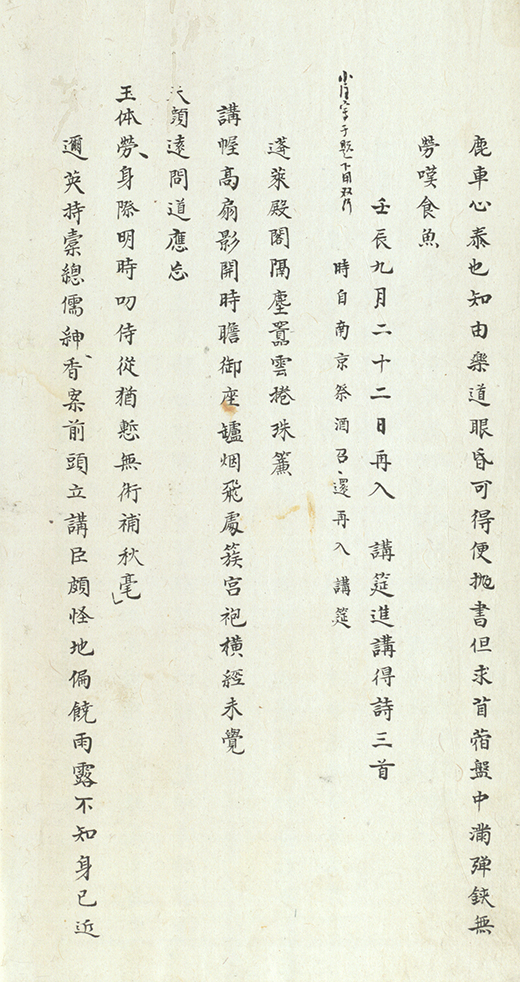 鹿車心泰也知由樂道眼昏可得便抛書但求苜蓿盤中滿彈鋏無
勞嘆食魚
壬辰九月二十二日再入 講筵進講得詩三首
小注字于題下用双行
時自南京祭酒召還再入講筵
蓬萊殿閣隔塵囂雲捲珠簾
講幄高扇影開時瞻御座罏烟飛處簇宮袍橫經未覺
天顔遠問道應忘
玉体勞身際明時叨侍從猶慙無術補秋毫
邇英持橐總儒紳香案前頭立講臣頗怪地偏饒雨露不知身已近